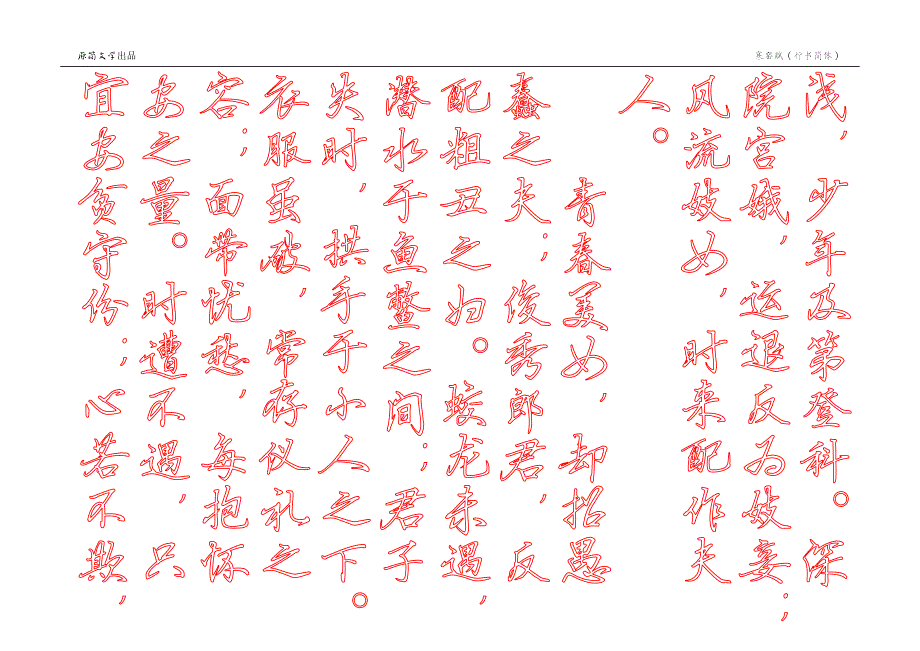 原文学出品
寒窑赋（行书简体）
浅，少年及第登科。深
院宫娥，运退反为妓妾；
风流妓女，时来配作夫
人。
青春美女，却招愚
蠢之夫；俊秀郎君，反
配粗丑之妇。蛟龙未遇，
潜水于鱼鳖之间；君子
失时，拱手于小人之下。
衣服虽破，常存仪礼之
容；面带忧愁，每抱怀
安之量。时遭不遇，只
宜安贫守份；心若不欺，